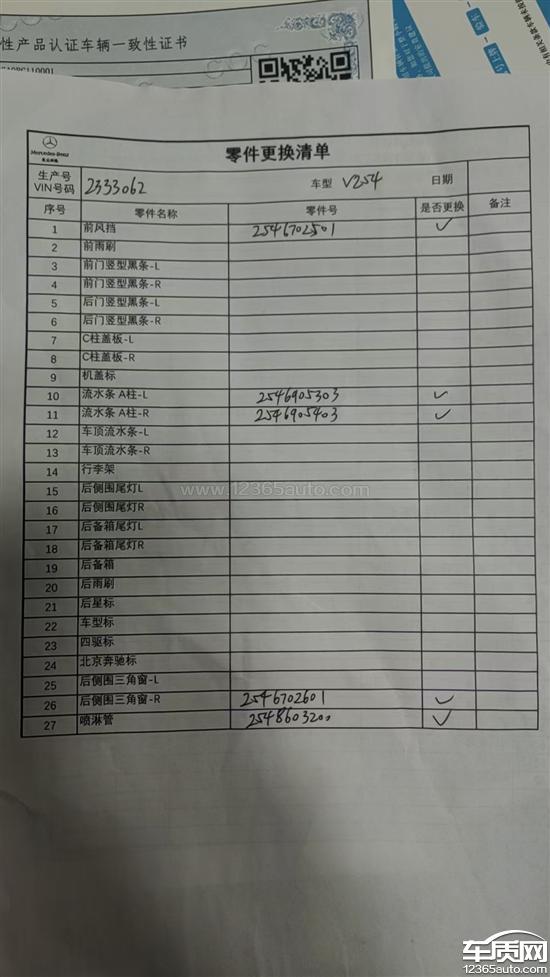 性产品认证车辆一致性证书
Mercedes-Benz
零件更换清单
生产号
VIN号码 2333062 车型 V254 日期
序号 零件名称 零件号 是否更换 备注
1 前风挡 2546702501 ✓
2 前雨刷
3 前门竖型黑条-L
4 前门竖型黑条-R
5 后门竖型黑条-L
6 后门竖型黑条-R
7 C柱盖板-L
8 C柱盖板-R
9 机盖标
10 流水条 A柱-L 2546905303 ✓
11 流水条 A柱-R 2546905403 ✓
12 车顶流水条-L
13 车顶流水条-R
14 行李架
15 后侧围尾灯L
16 后侧围尾灯R
17 后备箱尾灯L
18 后备箱尾灯R
19 后备箱
20 后雨刷
21 后星标
22 车型标
23 四驱标
24 北京奔驰标
25 后侧围三角窗-L
26 后侧围三角窗-R 2546702601 ✓
27 喷淋管 2548603200 ✓
www.12365auto.com
车质网
12365auto.com